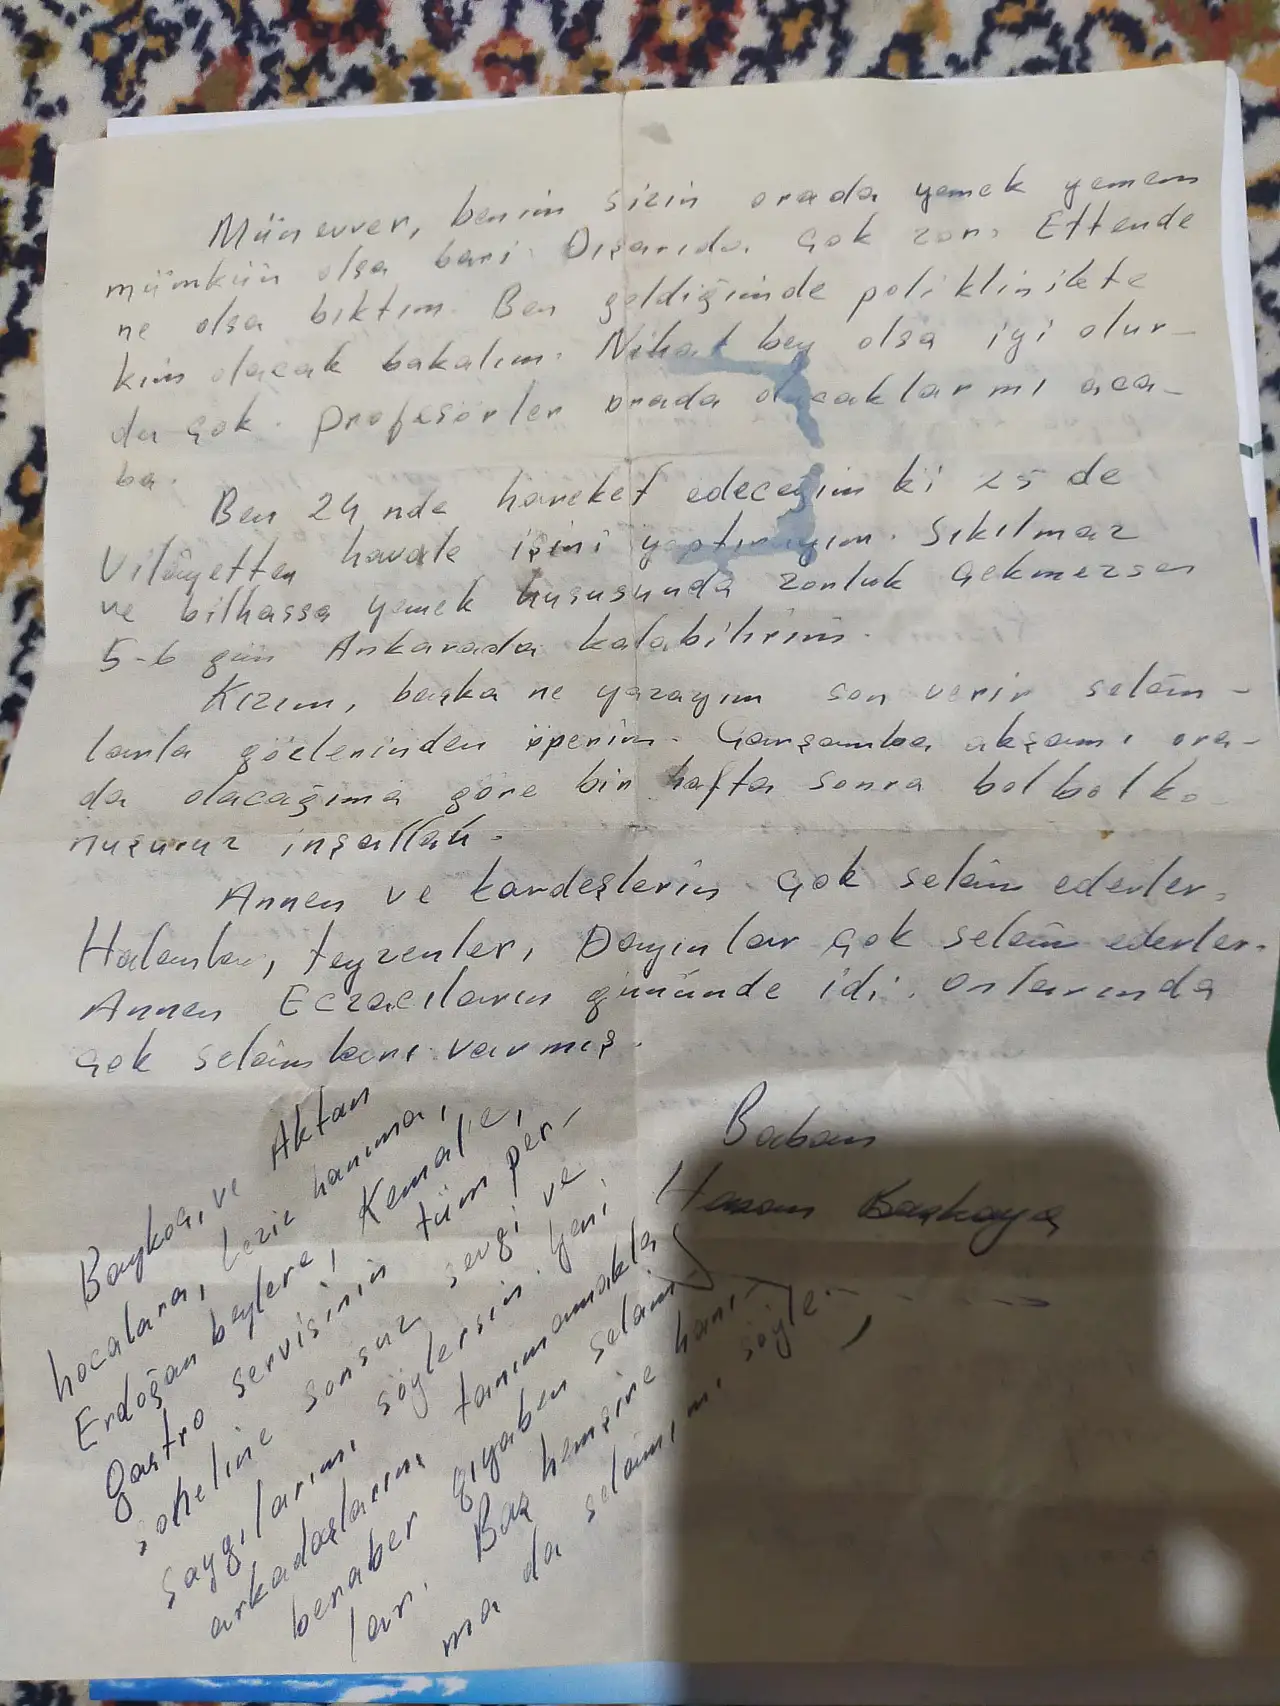 Münevver, benim sizin orada yemek yemem
mümkün olsa bari. Dışarıda çok zor. Ettende
ne olsa bıktım. Ben geldiğimde poliklinikte
kim olacak bakalım. Nihat bey olsa iyi olur-
du çok. Profesörler orada olacaklarmı aca-
ba.
Ben 24 nde hareket edeceğim ki 25 de
Vilâyetten havale işini yaptırayım. Sıkılmaz
ve bilhassa yemek hususunda zorluk çekmezsem
5-6 gün Ankarada kalabilirim.
Kızım, başka ne yazayım son verir selâm-
larla gözlerinden öperim. Çarşamba akşamı ora-
da olacağıma göre bir hafta sonra bol bol ko-
nuşuruz inşallah.
Annen ve kardeşlerin çok selâm ederler.
Halanlar, teyzenler, Dayınlar çok selâm ederler.
Annen Eczacıların gününde idi. Onlarında
çok selâmları varmış.
Baban
Hasan Başkaya
Baykal, ve Aktan
hocalara, hanıma,
Erdoğan beylere, Kemal'e,
gastro servisinin tüm per-
soneline sonsuz sevgi ve
saygılarımı söylersin. Yeni
arkadaşlarını tanımamakla
beraber gıyaben selâm-
lar. Baş hemşire hanı-
ma da selâmımı söyle.